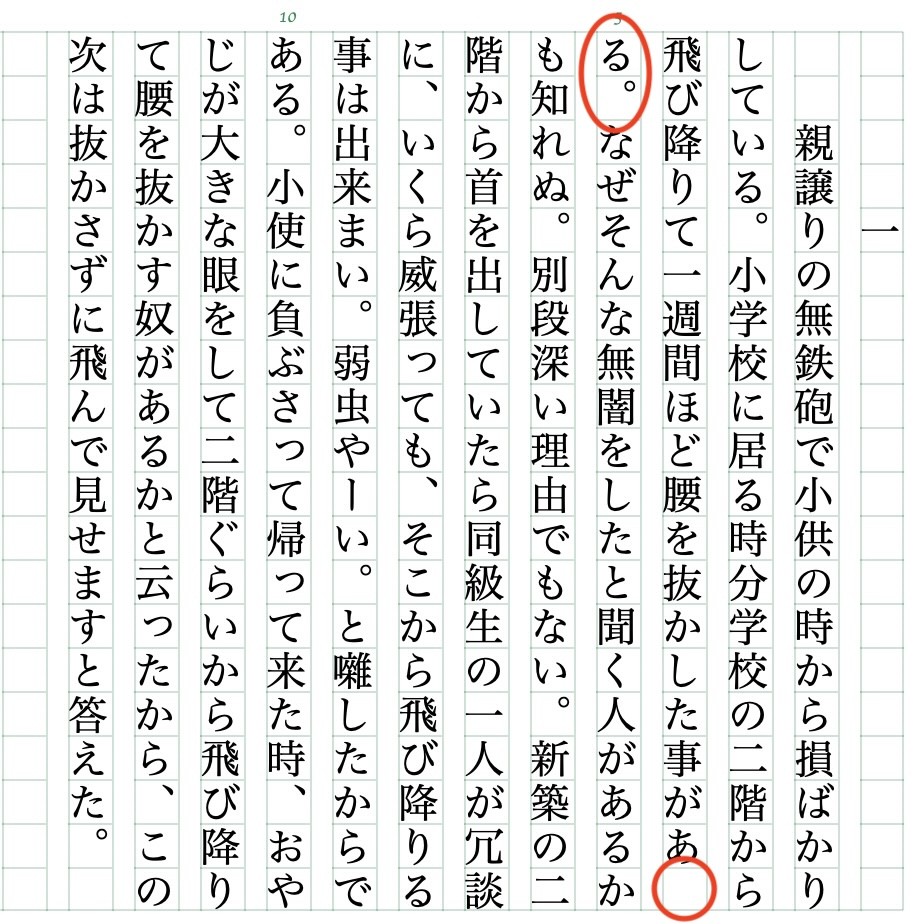 10
5
一
親譲りの無鉄砲で小供の時から損ばかり
している。小学校に居る時分学校の二階から
飛び降りて一週間ほど腰を抜かした事があ
る。なぜそんな無闇をしたと聞く人があるか
も知れぬ。別段深い理由でもない。新築の二
階から首を出していたら同級生の一人が冗談
に、いくら威張っても、そこから飛び降りる
事は出来まい。弱虫やーい。と囃したからで
ある。小使に負ぶさって帰って来た時、おや
じが大きな眼をして二階ぐらいから飛び降り
て腰を抜かす奴があるかと云ったから、この
次は抜かさずに飛んで見せますと答えた。